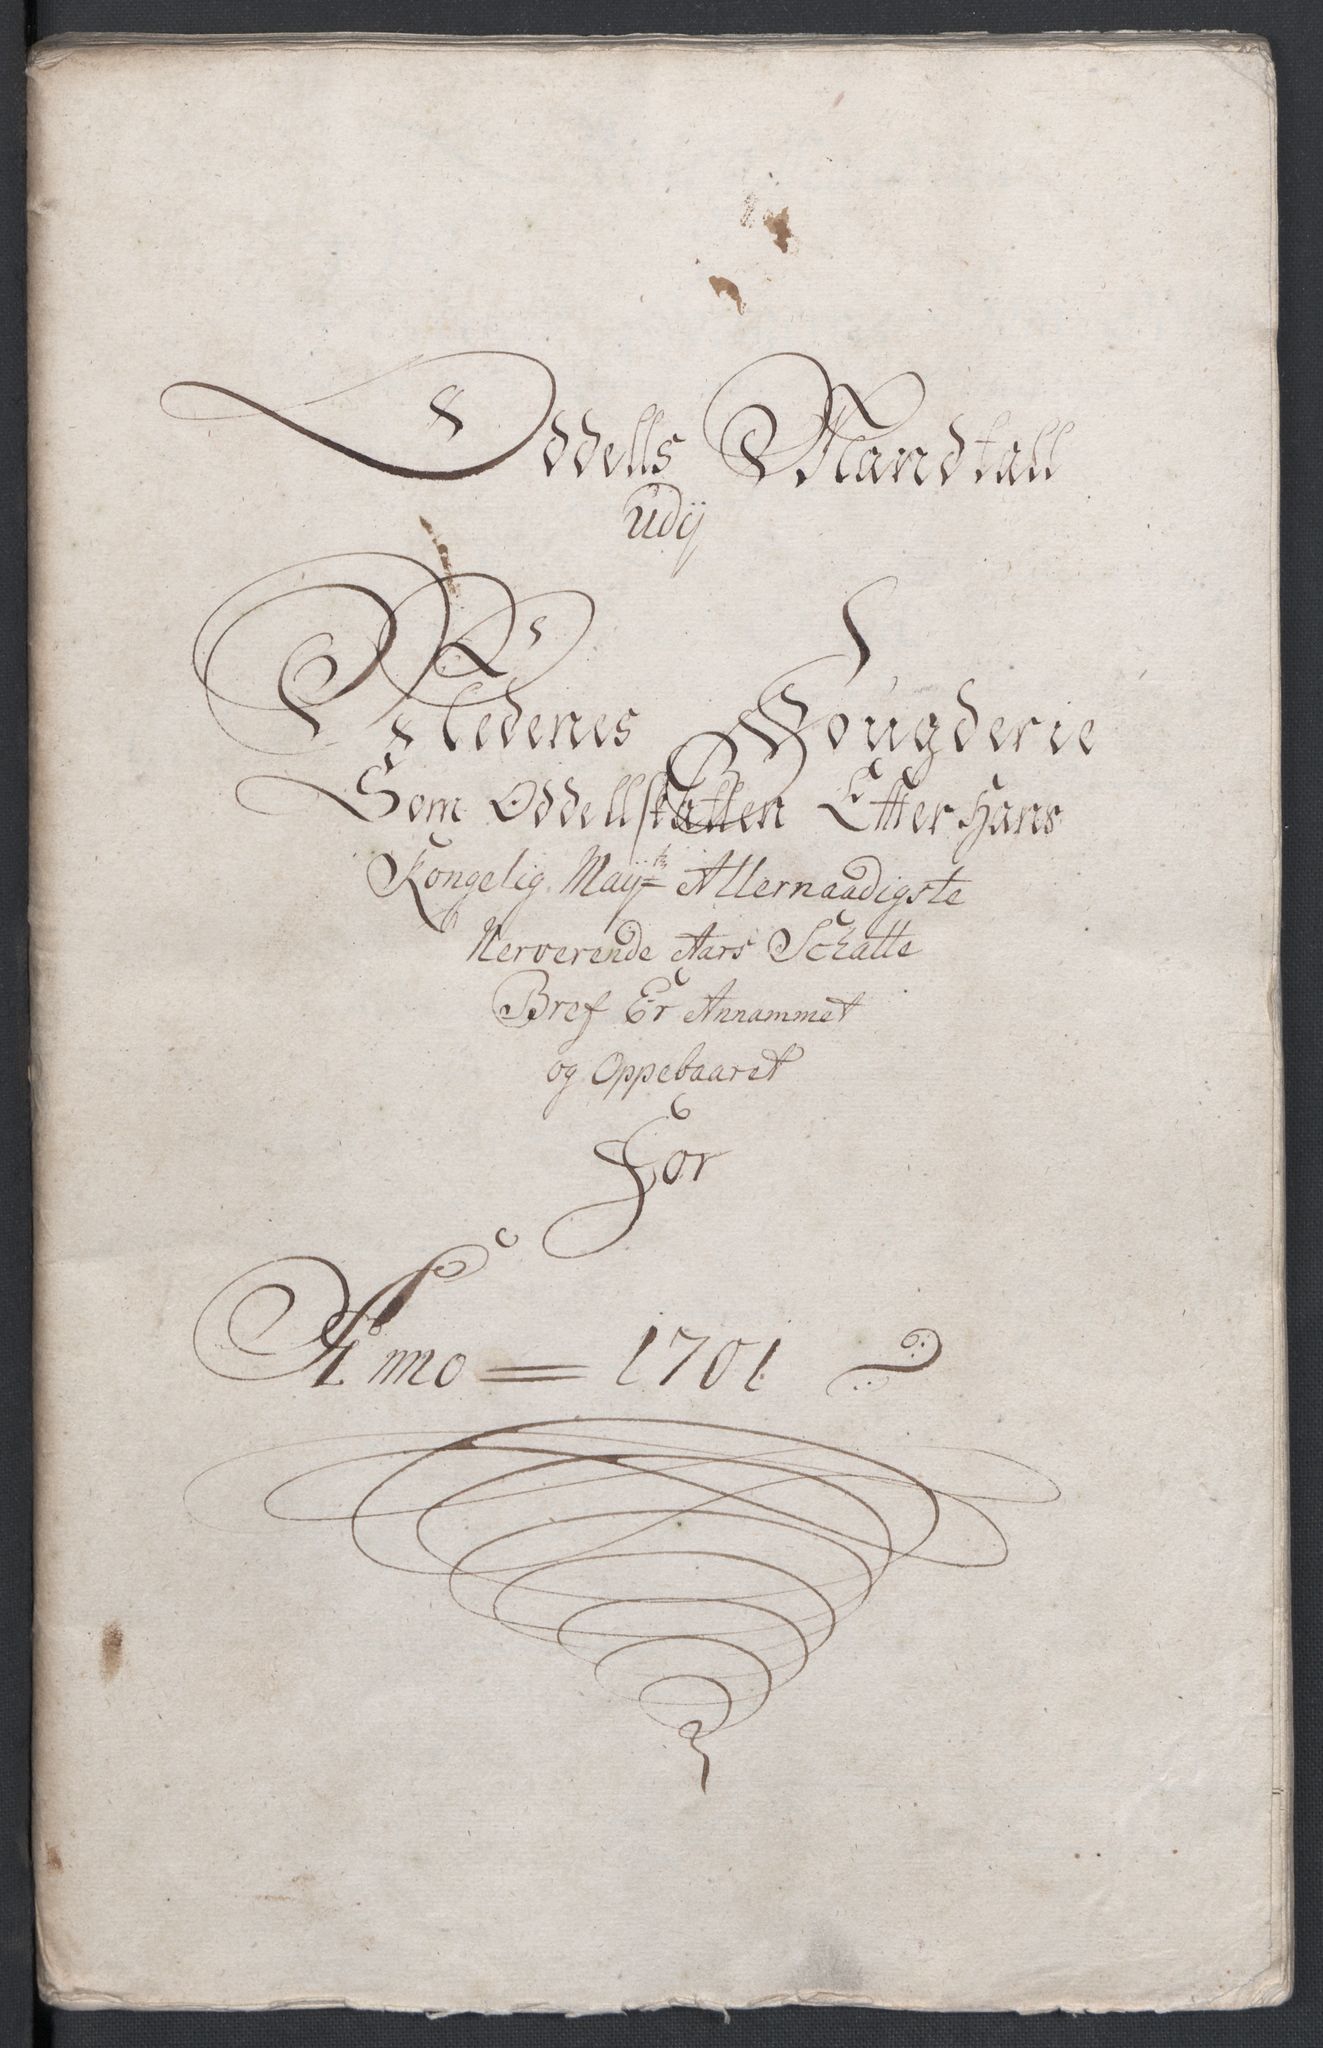 Oddells Mandtall
udij
Nedenes Fougderie
Som Oddellskatten Effter Hans
Kongelig. Mayts Allernaadigste
Nerverende Aars Schatte
Bref Er Annammet
og Oppebaaret
For
Anno = 1701